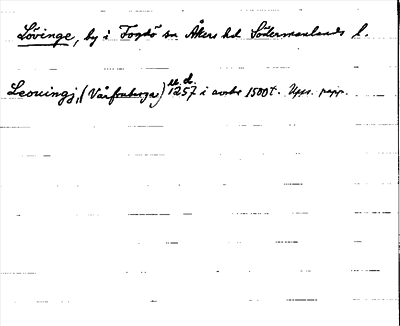 Lövinge, by i Fogdö sn Åkers hd Södermanlands l.
Leouingj, (Vårfruberga) u.d. 1257 i avskr 1500t. Upps. papp.